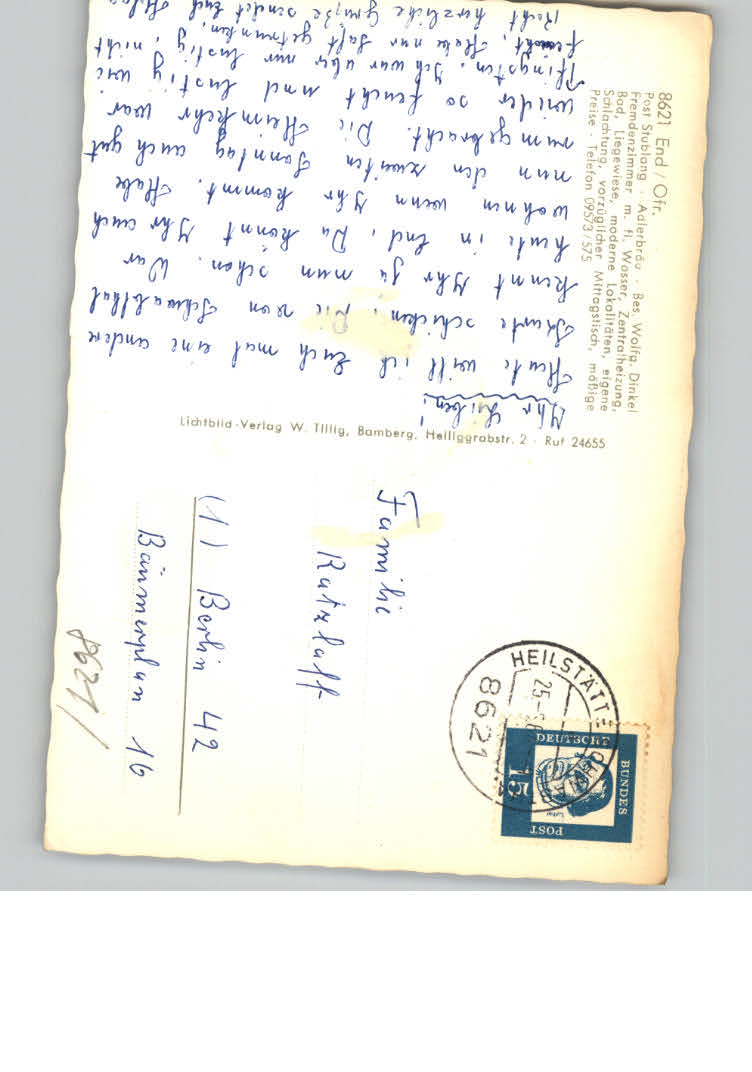 8621 End / Ofr.
Post Stublang · Adlerbräu · Bes. Wolfg. Dinkel
Fremdenzimmer m. fl. Wasser, Zentralheizung,
Bad, Liegewiese, moderne Lokalitäten, eigene
Schlachtung, vorzüglicher Mittagstisch, mäßige
Preise · Telefon 09573/575
Ihr Lieben!
Heute will ich Euch mal eine andere
Karte schicken, die von Schwabthal
kennt Ihr ja nun schon. War
heute in End, Da könnt Ihr auch
wohnen wenn Ihr kommt. Habe
nun den zweiten Sonntag auch gut
rumgebracht. Die Heimkehr war
wieder so feucht und lustig wie
Pfingsten. Ich war aber nur lustig, nicht
feucht, Habe nur Saft getrunken,
Recht herzliche Grüße sendet Euch
Lichtbild-Verlag W. Tillig, Bamberg, Heiliggrabstr. 2 · Ruf 24655
Familie
Ratzlaff
(1) Berlin 42
Bäumerplan 16
HEILSTÄTTE
25.
8621
DEUTSCHE
BUNDES
POST
15
Luther